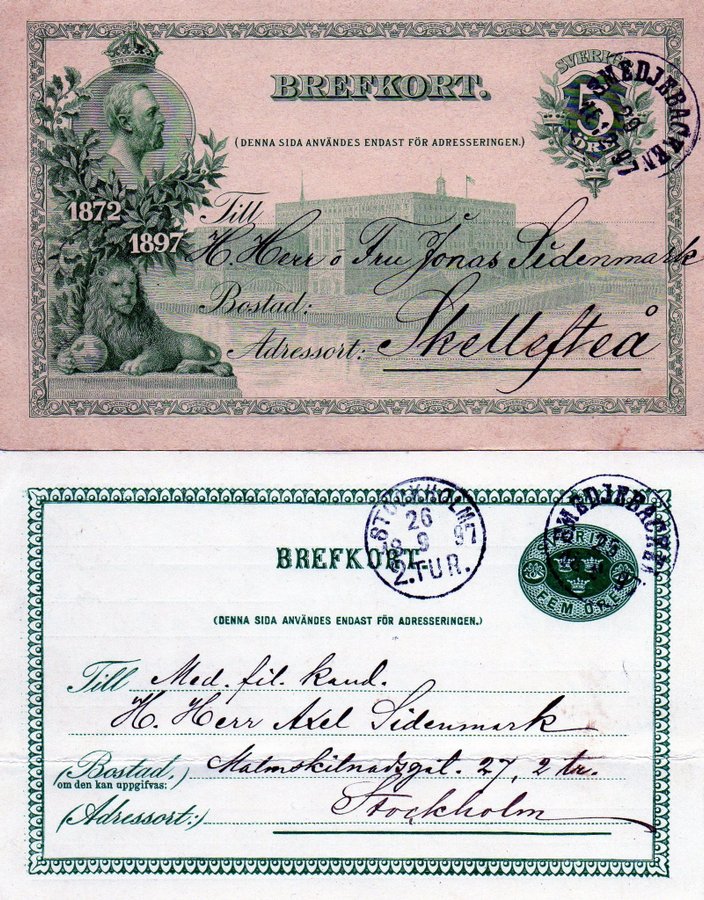 BREFKORT.
SVERIGE
5
SMEDJEBACKEN
(DENNA SIDA ANVÄNDES ENDAST FÖR ADRESSERINGEN.)
1872
1897
Till
H. Herr o Fru Jonas Sidenmark
Bostad:
Adressort: Skellefteå
STOCKHOLM
26
18 9 97
2. TUR.
SMEDJEBACKEN
BREFKORT.
SVERIGE
FEM ÖRE
(DENNA SIDA ANVÄNDES ENDAST FÖR ADRESSERINGEN.)
Till Med. fil. kand.
H. Herr Axel Sidenmark
(Bostad,) Malmskilnadsgat. 27, 2 tr.
om den kan uppgifvas:
(Adressort:) Stockholm